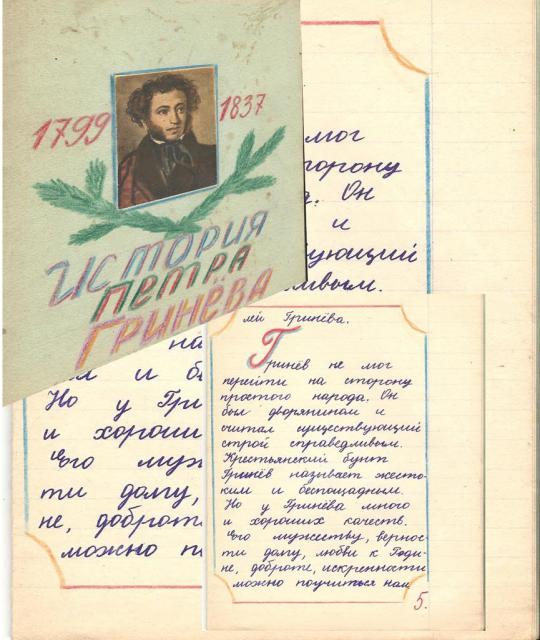 1799 1837
История
Петра
Гринёва
мог
торону
Он
и
ующий
ливым.
на
и
Но у Гри
и хороши
Его муж
ти долгу,
не, доброт
можно п
лей Гринёва.
Гринёв не мог
перейти на сторону
простого народа. Он
был дворянином и
считал существующий
строй справедливым.
Крестьянский бунт
Гринёв называет жесто-
ким и беспощадным.
Но у Гринёва много
и хороших качеств.
Его мужеству, вернос-
ти долгу, любви к Роди-
не, доброте, искренности
можно поучиться нам
5.